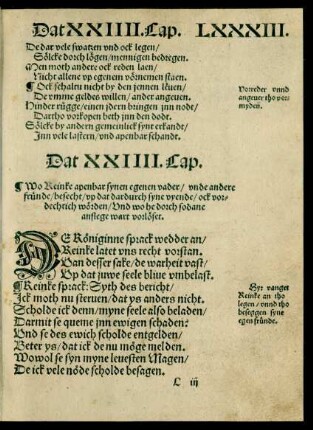 Dat XXIIII. Cap. LXXXIII.
De dar vele swatten vnd ock legen/
Sölcke dorch lögen/mennigen bedregen.
Men moth andere ock reden laen/
Nicht allene vp egenem vörnemen staen.
¶ Ock schalen nicht by den jennen lüuen/
De vmme geldes willen/ander angeuen.
Hinder rügge/einen jdern bringen jnn node/
Dartho vorkopen beth jnn den dodt.
Sölcke by andern gemeinlick synt erkandt/
Jnn vele lastern/vnd apenbar schandt.
Vorreder vnnd
angeuer tho vor-
myden.
Dat XXIIII. Cap.
¶ Wo Reinke apenbar synen egenen vader/ vnde andere
fründe/besecht/vp dat dardurch syne vyende/ock vor-
dechtich wörden/Vnd wo he dorch sodane
anslege wart vorlöset.
DE Königinne sprack wedder an/
Reinke latet vns recht vorstan.
Van desser sake/de warheit vast/
Vp dat juwe seele bliue vmbelast.
¶ Reinke sprack: Syth des bericht/
Jck moth nu steruen/dat ys anders nicht.
Scholde ick denn/myne seele also beladen/
Darmit se queme jnn ewigen schaden:
Vnd se des ewich scholde entgelden/
Beter ys/dat ick de nu möge melden.
Wowol se syn myne leuesten Magen/
De ick vele nöde scholde besagen.
Hyr vanget
Reinke an tho
legen/vnnd tho
beseggen syne
egen fründe.
L iij